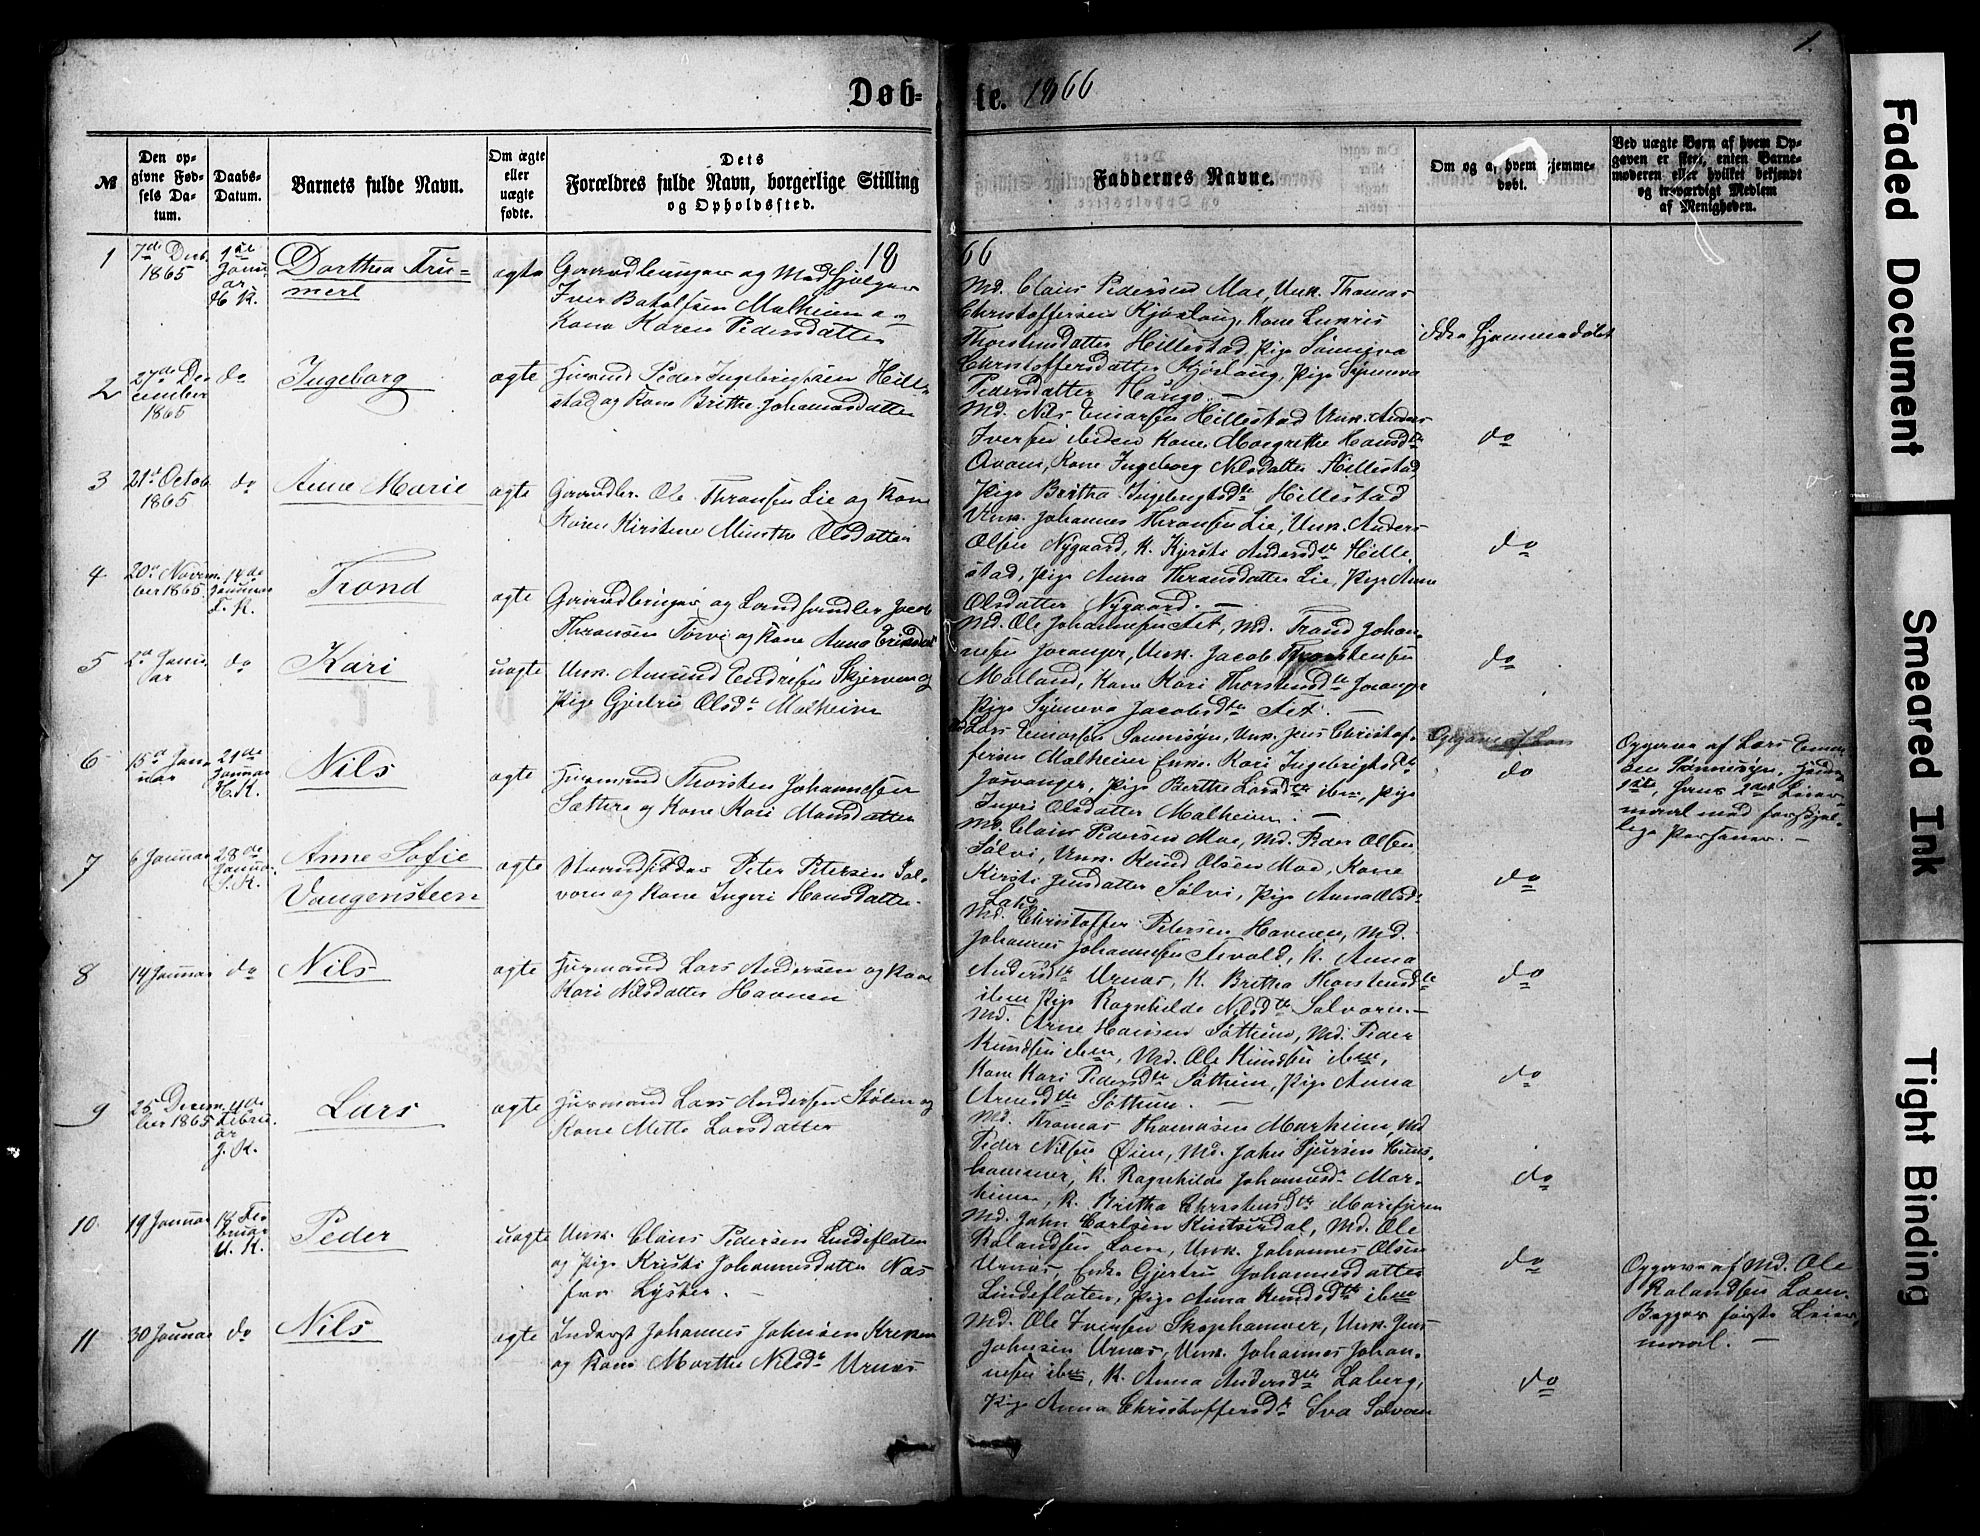 Døb-te. 1866
1.
№
Den op-
givne Fød-
sels Da-
tum.
Daabs-
Datum.
Barnets fulde Navn.
Om ægte
eller
uægte
fødte.
Dets
Forældres fulde Navn, borgerlige Stilling
og Opholdssted.
Faddernes Navne.
Om og af hvem hjemme-
døbt.
Ved uægte Børn af hvem Op-
gaven er skeet, enten Barne-
moderen eller hvilket bekjendt
og troværdigt Medlem
af Menigheden.
1866
1
7de Decb.
1865
1ste
Janu
ar
H. K.
Dorthea Fru-
merl
ægte
Gaardbruger og Medhjelper
Iver Botolfsen Malheim og
Kone Karen Pedersdatter
Md. Claus Pedersen Moe, Unk. Thomas
Christoffersen Kjørlaug, Kone
Thorstensdatter Hillestad, Pige Sønneva
Christoffersdatter Kjørlaug, Pige Synneva
Pedersdatter
ikke hjemmedøbt
2
27de De-
cember
1865
do
Ingeborg
ægte
Huusmd Peder Ingebrigtsen Hille-
stad og Kone Brithe Johannesdatter
Md. Nils Einarsen Hillestad Unk. Anders
Iversen ibiden Kone Margrethe Hansdtr
Kone Ingeborg Nilsdatter Hillestad
Pige Britha Ingebrigtsdtr Hillestad
do
3
21st Octob.
1865
do
Anne Marie
ægte
Gaardbr. Ole Thronsen Lie og Kone
Karen Kirstene Munthe Olsdatter
Unk. Johannes Thronsen Lie, Unk. Anders
Olsen Nygaard, K. Kjersti Andersdtr Hille
stad, Pige Anna Thronsdatter Lie, Pige Anne
Olsdatter Nygaard. —
do
4
20de Novem-
ber 1865
14de
Januar
Trond
ægte
Gaardbruger og Landhandler Jacob
Thronsen Tørvi og Kone Anna
Md. Ole Johannesen Fet, Md. Trond Johan-
nesen Joranger, Unk. Jacob Thorstensen
Molland, Kone Kari Thorstensdtr Joranger
Pige Synneva Jacobsdtr Fet. —
do
5
2d Janu-
ar
do
Kari
uægte
Unk. Amund Endresen Skjerven og
Pige Gjertrù Olsdtr Malheim
Lars Einarsen Sønnesyn, Unk. Jens Christof-
fersen Malheim Enke Kari Ingebrigtsdtr
Joranger, Pige Berthe Larsdtr ibm, Pige
Ingri Olsdatter Malheim. —
do
Opgave af Lars Einar-
sen Sønnesyn,
1ste, hans 2det Leier-
maal med forskjel-
lige Personer. —
6
15d Janu-
uar
21de
Januar
H. K.
Nils
ægte
Huusmand Thorsten Johannesen
Sættere og Kone Kari Monsdatter
Md. Claus Pedersen Moe, Md. Peder Olsen
Sølvi, Unk. Knud Olsen Moe, Kone
Kirsti Jensdatter Sølvi, Pige Anna Olsdr
do
7
6 Januar
28de
Januar
S. K.
Anne Sofie
Vangensteen
ægte
Peter Petersen Sol-
vorn og Kone Ingeri Hansdatter.
Md. Christoffer Petersen Havnen, Md.
Johannes Johannesen Kvold, K. Anna
Andersdtr Urnæs, K. Britha Thorstensdtr
ibm Pige Ragnhilde Nilsdtr Solvorn.—
do
8
14 Januar
do
Nils
ægte
Huusmand Lars Andersen og Kone
Kari Nilsdatter Havnen
Md. Arne Hansen Søtthun, Md. Peder
Knudsen ibm, Md. Ole Knudsen ibm,
Kone Kari Pedersdtr Søtthun, Pige Anna
Arnesdtr Søtthun. —
do
9
25 Decem-
ber 1865
4de
Febru-
ar
J. K.
Lars
ægte
Huusmand Lars Andersen Stølen og
Kone Mette Larsdatter
Md. Thomas Thomasen Marheim, Md
Peder Nilsen Øien, Md. John Sjursen
K. Ragnhilde Johannesdr Mar-
heim, K. Britha Christensdtr Marifjæren
do
10
19 Januar
18 Fe-
bruar
U. K.
Peder
uægte
Unk. Claus Pedersen Lindefloten
og Pige Kristi Johannesdatter Næs
fra Lyster. —
Md. John Carlsen Md. Ole
Rolandsen Loen, Unk. Johannes Olsen
Urnæs Enke Gjertru Johannesdatter
Lindefloten, Pige Anna Knudsdtr ibm
do
Opgave af Md. Ole
Rolandsen Loen.
Begges første Leier-
maal. —
11
30 Januar
do
Nils
ægte
Inderst Johannes Johnsen Kreken
og Kone Marthe Nilsdtr Urnæs
Md. Ole Iversen Skophammer, Unk. Jens
Johnsen Urnæs, Unk. Johannes Johan-
nesen ibm, K. Anna Andersdtr Laberg,
Pige Anna Christoffersdtr Sva Solvorn
do
Faded Document
Smeared Ink
Tight Binding